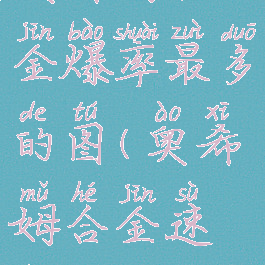 jīn bào shuài zuì duō
金爆率最多
de tú ào xī
的图(奥希
mǔ hé jīn sù
姆合金速